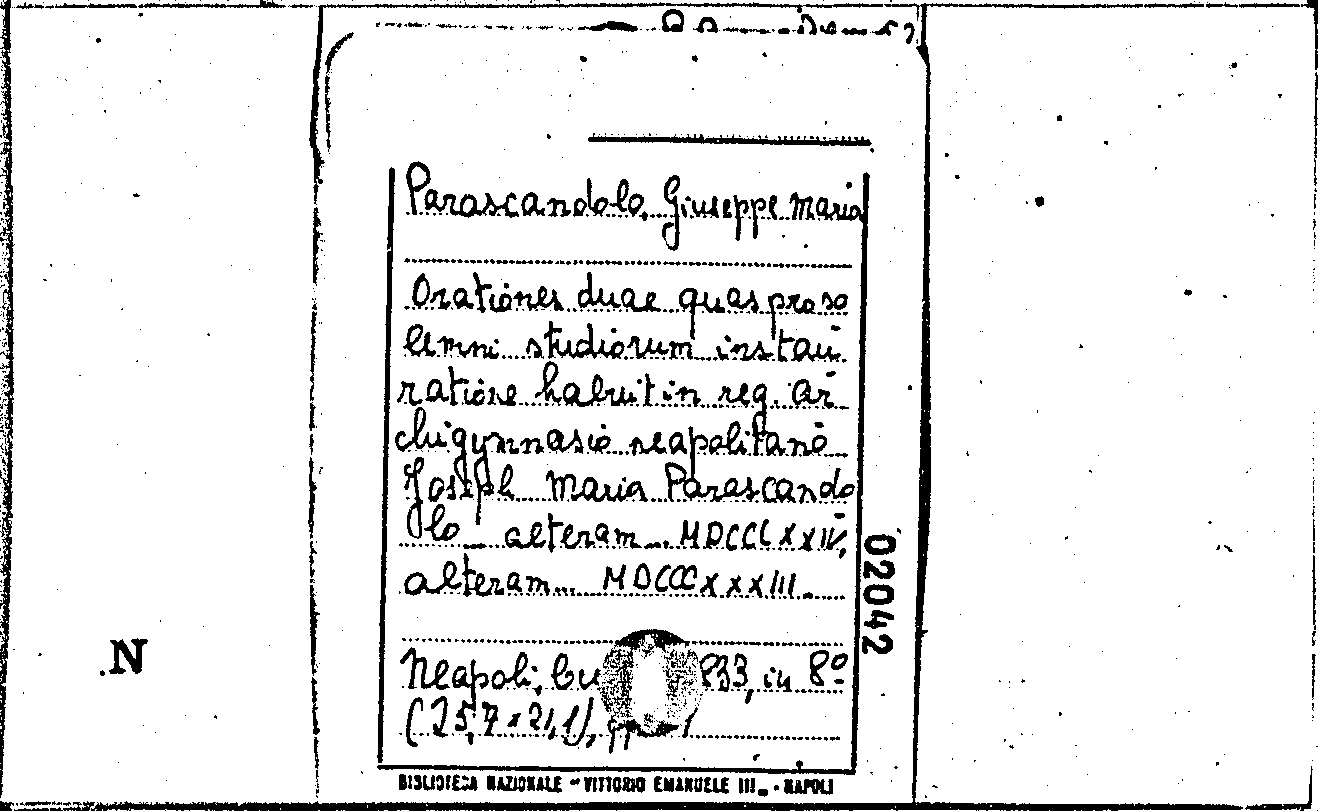 Parascandolo, Giuseppe Maria
Orationes duae quas pro so
lemni studiorum instau
ratione habuit in reg. ar
chigymnasio neapolitano
Joseph Maria Parascando
lo alteram... MDCCCXXIV,
alteram... MDCCCXXXIII.
02042
N
Neapoli, 833, in 8º
(25,7 x 21,1),
BIBLIOTECA NAZIONALE - VITTORIO EMANUELE III - NAPOLI